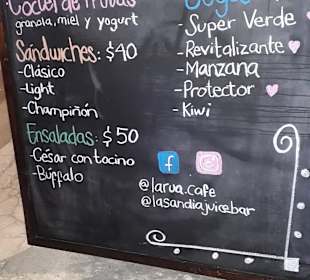 Coctel de frutas
granola, miel y yogurt
Sándwiches: $40
-Clásico
-Light
-Champiñón
Ensaladas: $50
-César con tocino
-Búffalo
-Super Verde
-Revitalizante
-Manzana
-Protector
-Kiwi
f
@larua.cafe
@lasandiajuicebar